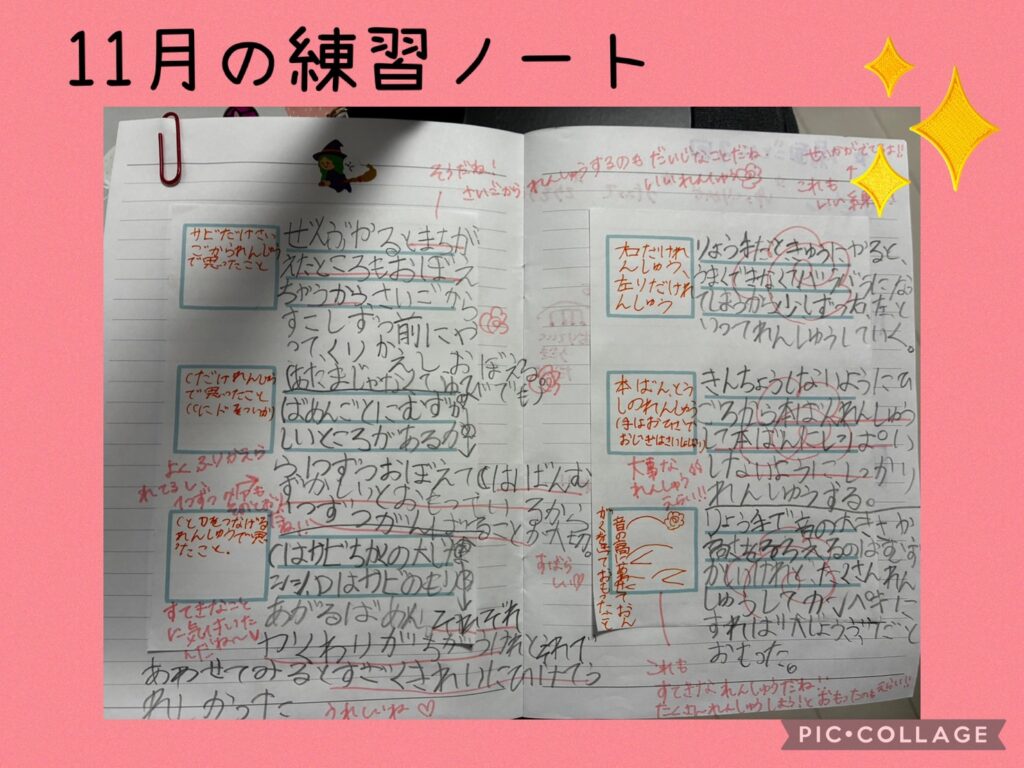 11月の練習ノート
そうだね!
さいごから
れんしゅうするのも だいじなことだね。
いいれんしゅう
これも
いい練
サビだけさい
ごかられんしゅう
で思ったこと
ぜんぶやると まちが
えたところもおぼえ
ちゃうから、さいごから
すこしずつ前にやっ
って、くりかえし、おぼえる。
(あたまじゃなくてゆびでも)
Cだけれんしゅう
で思ったこと
ばめんごとにむずか
しいところがあるか
ら、1つずつおぼえてCはいばんむ
ずかしいとおもっているから
1つずつがんばることが大切。
よくふりかえら
れてるし
すばら
しい♡
CとDをつなげる
れんしゅうで思っ
たこと。
Cはサビちかの大じな
シーン、Dはサビのもり
あがるばめん、それぞれ
やくわりがちがうけれどそれで
あわせてみるとすごくきれいにひけてう
れしかった
すてきなこと
に気がついた
んだね〜♡
うれしいね♡
右だけれ
んしゅう、
左りだけれ
んしゅう
りょうほうときゅうにやると、
うまくできなくて
てしまうから少しずつ右、左と
いってれんしゅうしていく。
本ばんとう
しのれんしゅう
(手はおひざで
おじぎはさいしょ
きんちょうしないようにひ
ごろから本ばんれんしゅう
して本ばんにしっぱい
しないようにしっかり
れんしゅうする。
大事な
れんしゅう
えらい!!
音の高さにあわせておん
がくを作っておもったこと
りょう手で音の大きさか
えるのはむず
かしいけれど、たくさんれん
しゅうしてカンペキに
すれば大じょうぶだと
おもった。
これも
すてきなれんしゅうだね!
たくさんれんしゅうしよう!とおもったのも
PIC•COLLAGE